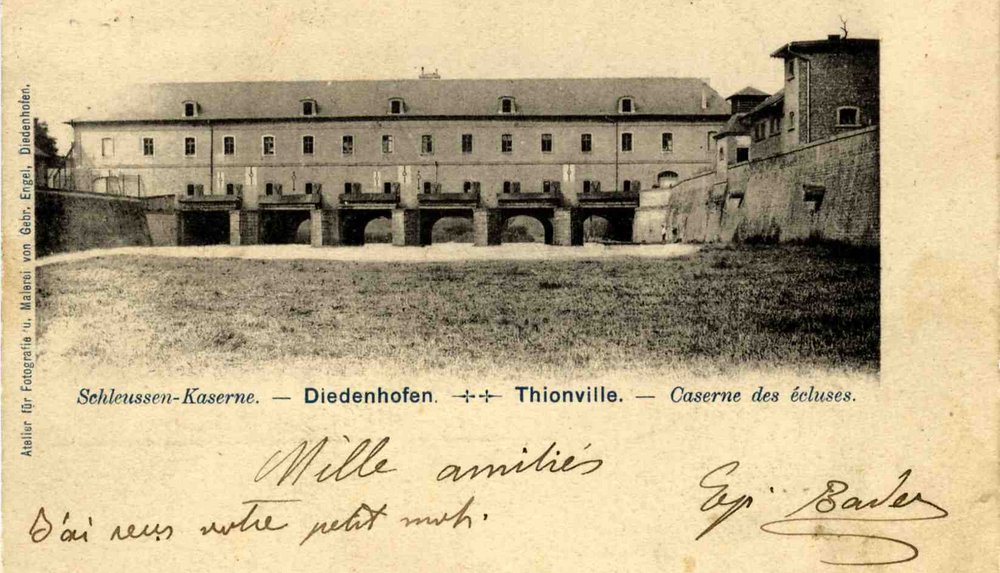 Atelier für Fotografie u. Malerei von Gebr. Engel, Diedenhofen.
Schleussen-Kaserne. — Diedenhofen. Thionville. — Caserne des écluses.
Mille amitiés
J'ai reçu votre petit mot.
Bader